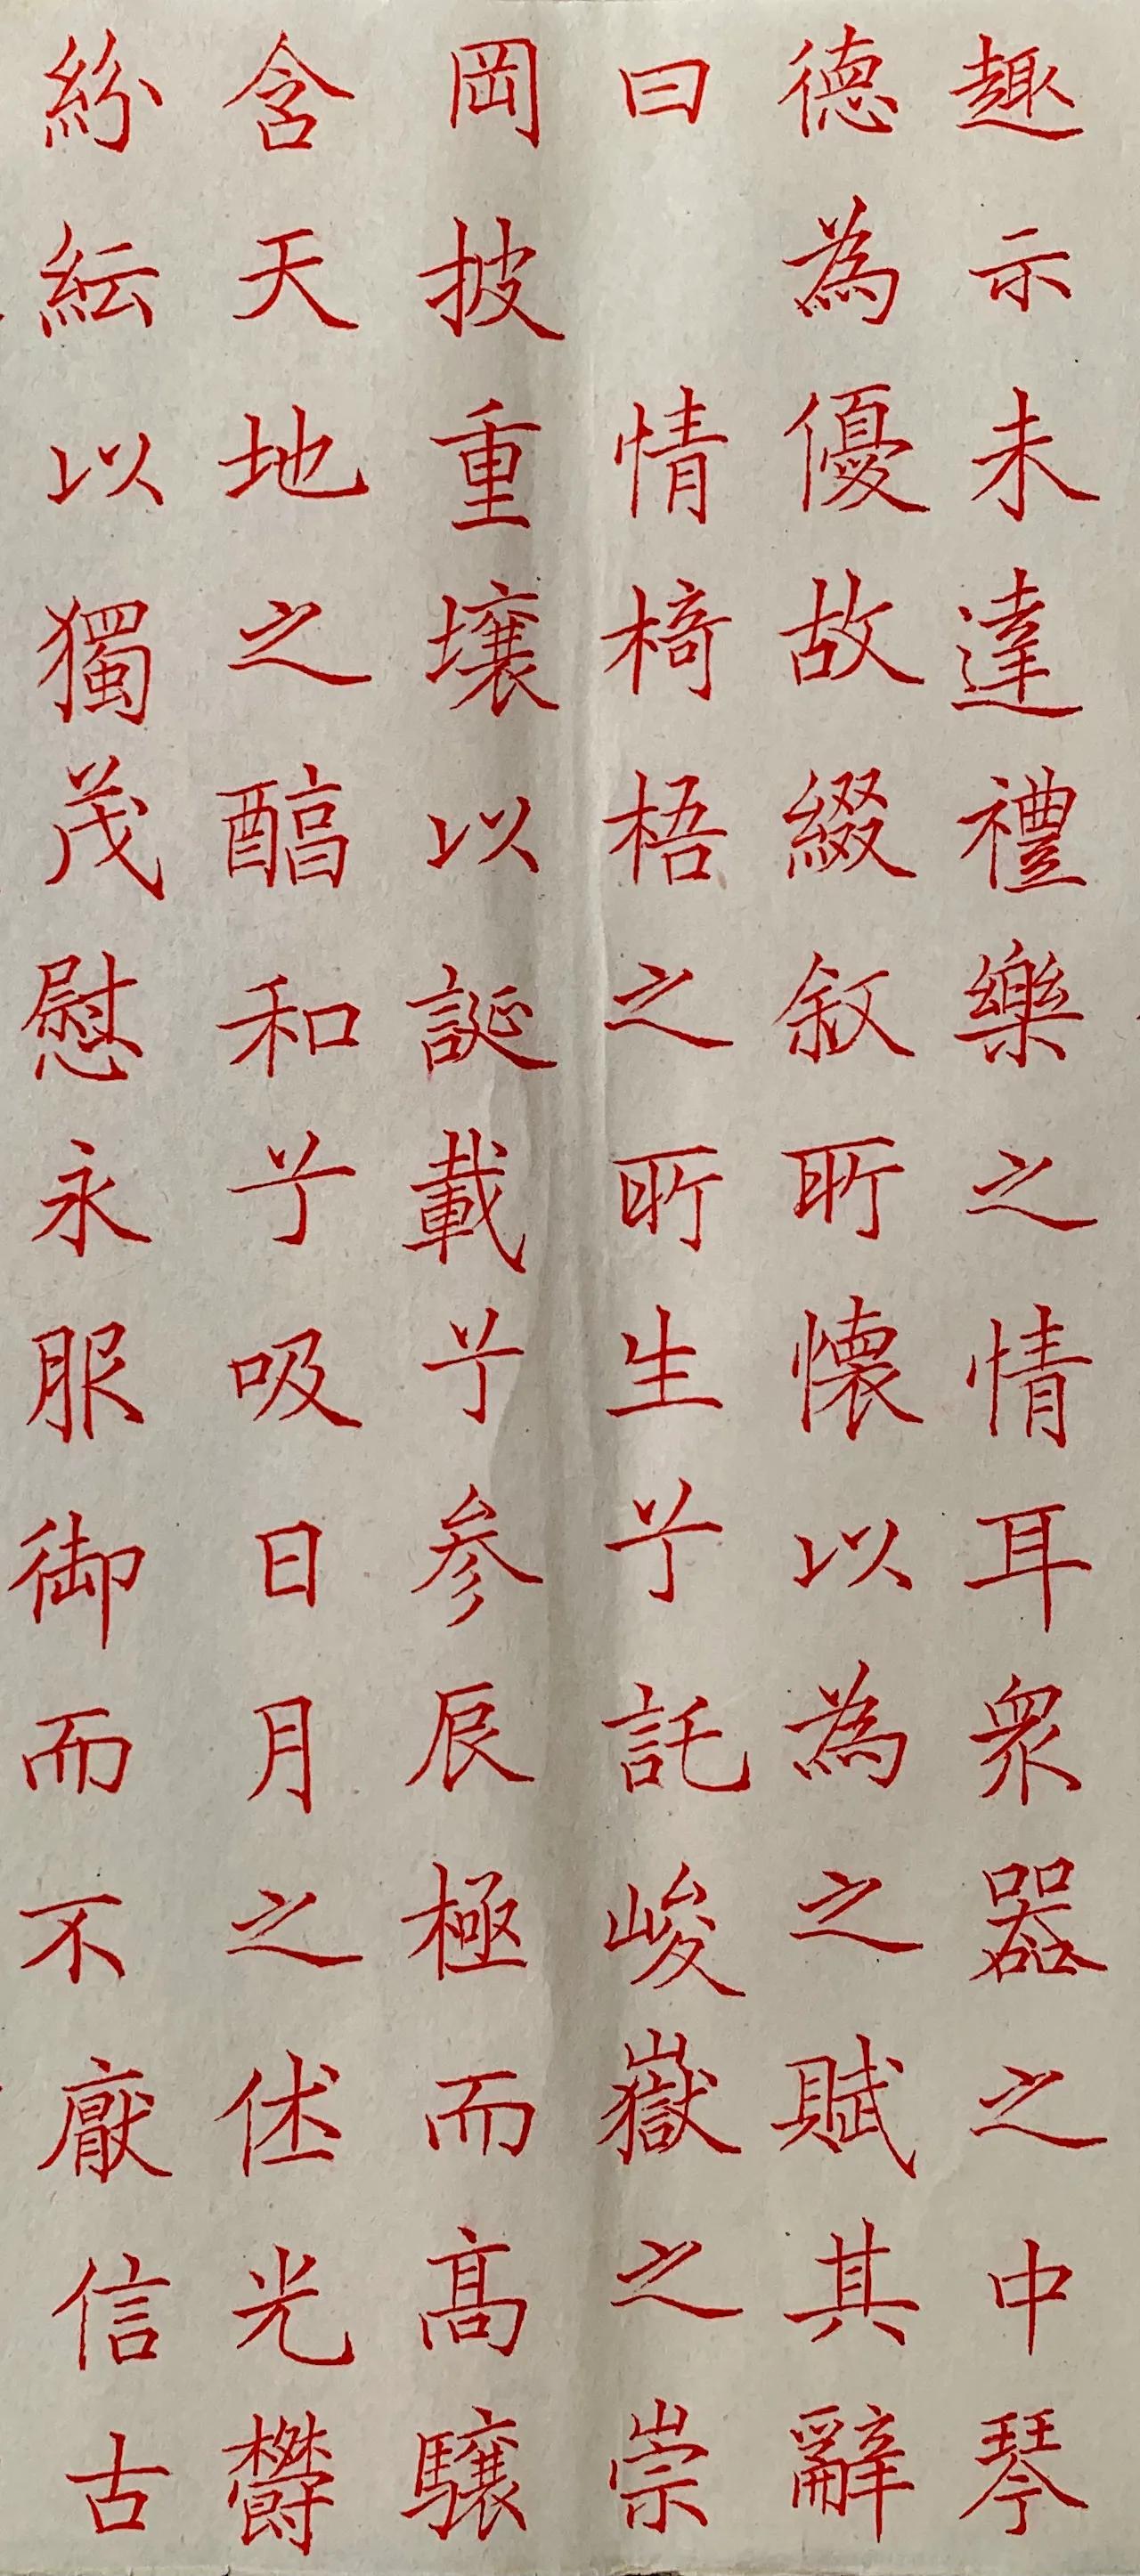 趣示未達禮樂之情耳衆器之中琴
德為優故綴叙所懷以為之賦其辭
曰 情椅梧之所生兮託峻嶽之崇
岡披重壤以誕載兮参辰極而髙驤
含天地之醇和兮吸日月之休光鬱
紛紜以獨茂慰永服御而不厭信古